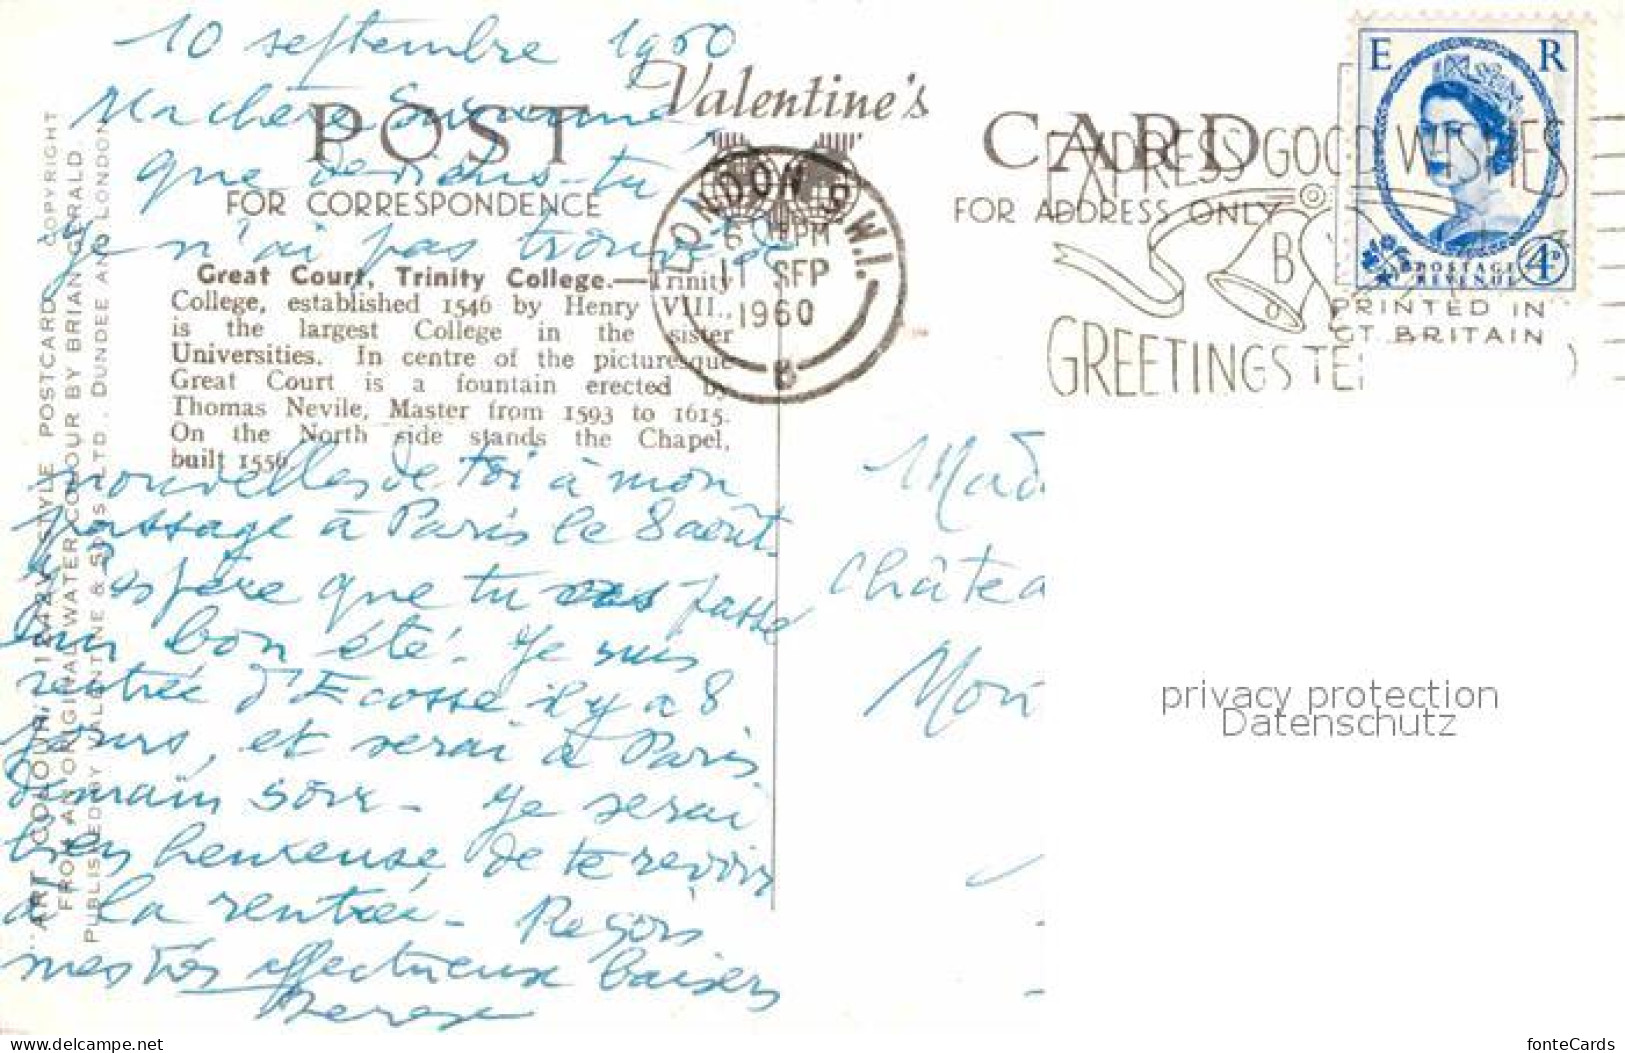 10 septembre 1960
Ma chère Suzanne
que deviens-tu
Je n'ai pas trouvé de
nouvelles de toi à mon
passage à Paris le 8 août.
J'espère que tu as passé
un bon été. Je suis
rentrée d'Ecosse il y a 8
jours, et serai à Paris
demain soir - Je serai
bien heureuse de te revoir
à la rentrée - Reçois
mes très affectueux baisers
POST CARD
Valentine's
FOR CORRESPONDENCE
FOR ADDRESS ONLY
Great Court, Trinity College.—Trinity
College, established 1546 by Henry VIII.,
is the largest College in the sister
Universities. In centre of the picturesque
Great Court is a fountain erected by
Thomas Nevile, Master from 1593 to 1615.
On the North side stands the Chapel,
built 1556.
COPYRIGHT
ART COLOUR POSTCARD
FROM AN ORIGINAL WATER COLOUR BY BRIAN GERALD
PUBLISHED BY VALENTINE & SONS LTD., DUNDEE AND LONDON
LONDON S.W.1.
PM
11 SEP
1960
EXPRESS GOOD WISHES
B
GREETINGS TE
E R
POSTAGE
REVENUE
4D
PRINTED IN
GT. BRITAIN
Mad
Châtea
Mon
privacy protection
Datenschutz
www.delcampe.net
fonteCards